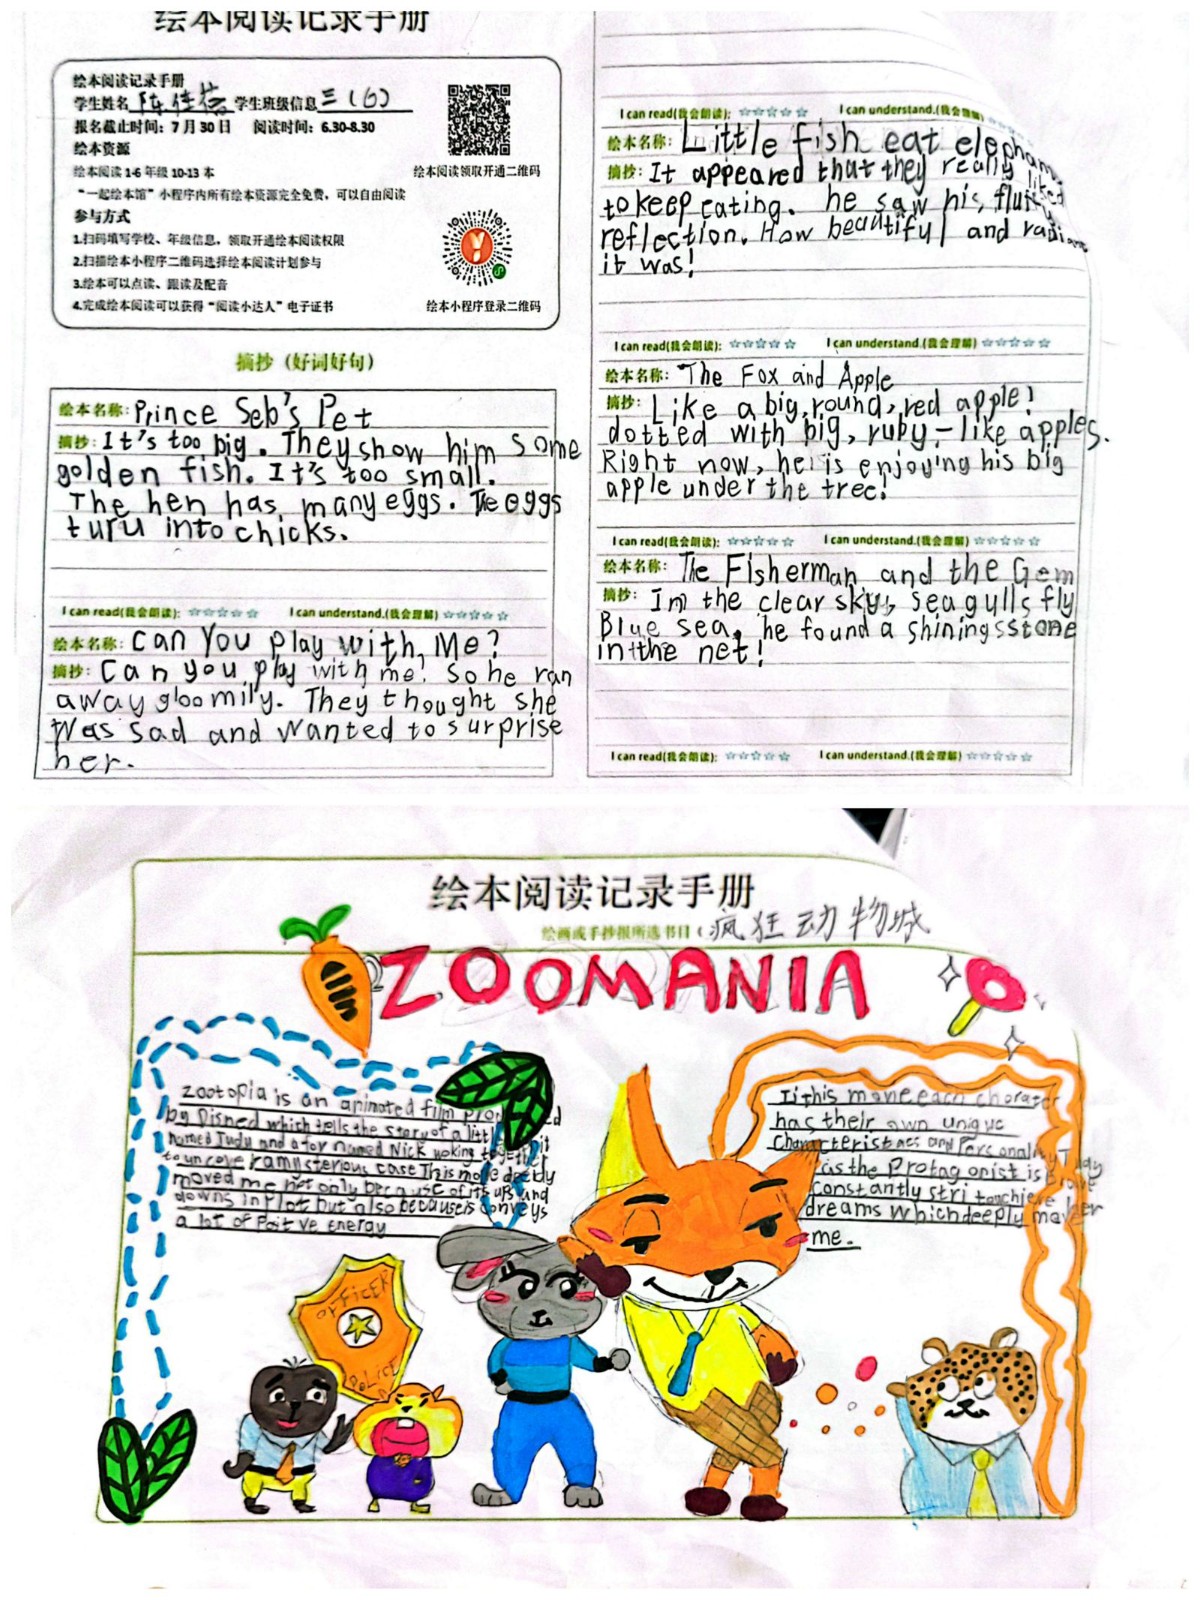 绘本阅读记录手册
绘本阅读记录手册
学生姓名 陈佳 学生班级信息 三(6)
报名截止时间：7月30日 阅读时间：6.30-8.30
绘本资源
绘本阅读1-6年级10-13本
“一起绘本馆”小程序内所有绘本资源完全免费，可以自由阅读
参与方式
1.扫码填写学校、年级信息，领取开通绘本阅读权限
2.扫描绘本小程序二维码选择绘本阅读计划参与
3.绘本可以点读、跟读及配音
4.完成绘本阅读可以获得“阅读小达人”电子证书
绘本阅读领取开通二维码
绘本小程序登录二维码
摘抄（好词好句）
绘本名称: Prince Seb's Pet
摘抄: It's too big. They show him some
golden fish. It's too small.
The hen has many eggs. The eggs
turu into chicks.
I can read(我会朗读): ☆☆☆☆☆ I can understand.(我会理解) ☆☆☆☆☆
绘本名称: Can You play with Me?
摘抄: Can you play with me! So he ran
away gloomily. They thought she
was sad and wanted to surprise
her.
I can read(我会朗读): ☆☆☆☆☆ I can understand.(我会理解)
绘本名称: Little fish eat
摘抄: It appeared that they really liked
to keep eating. he saw his
reflection. How beautiful and
it was!
I can read(我会朗读): ☆☆☆☆☆ I can understand.(我会理解) ☆☆☆☆☆
绘本名称: The Fox and Apple
摘抄: Like a big, round, red apple!
dotted with big, ruby-like apples.
Right now, he is enjoying his big
apple under the tree!
I can read(我会朗读): ☆☆☆☆☆ I can understand.(我会理解) ☆☆☆☆☆
绘本名称: The Fisherman and the Gem
摘抄: Im the clear sky, seagulls fly
Blue sea, he found a shiningsstone
in the net!
I can read(我会朗读): ☆☆☆☆☆ I can understand.(我会理解) ☆☆☆☆☆
绘本阅读记录手册
绘画或手抄报所选书目（ 疯狂动物城
ZOOMANIA
Zootopia is an animated film
by Disned which tells the story of a
named Judy and a for named Nick
case This deebly
moved me not only because of its ups and
downs in plot but also because is conveys
a lot of energy
each
has their own unique
and
as the Protagonist is
constantly
dreams which deeply
me.
OFFICER